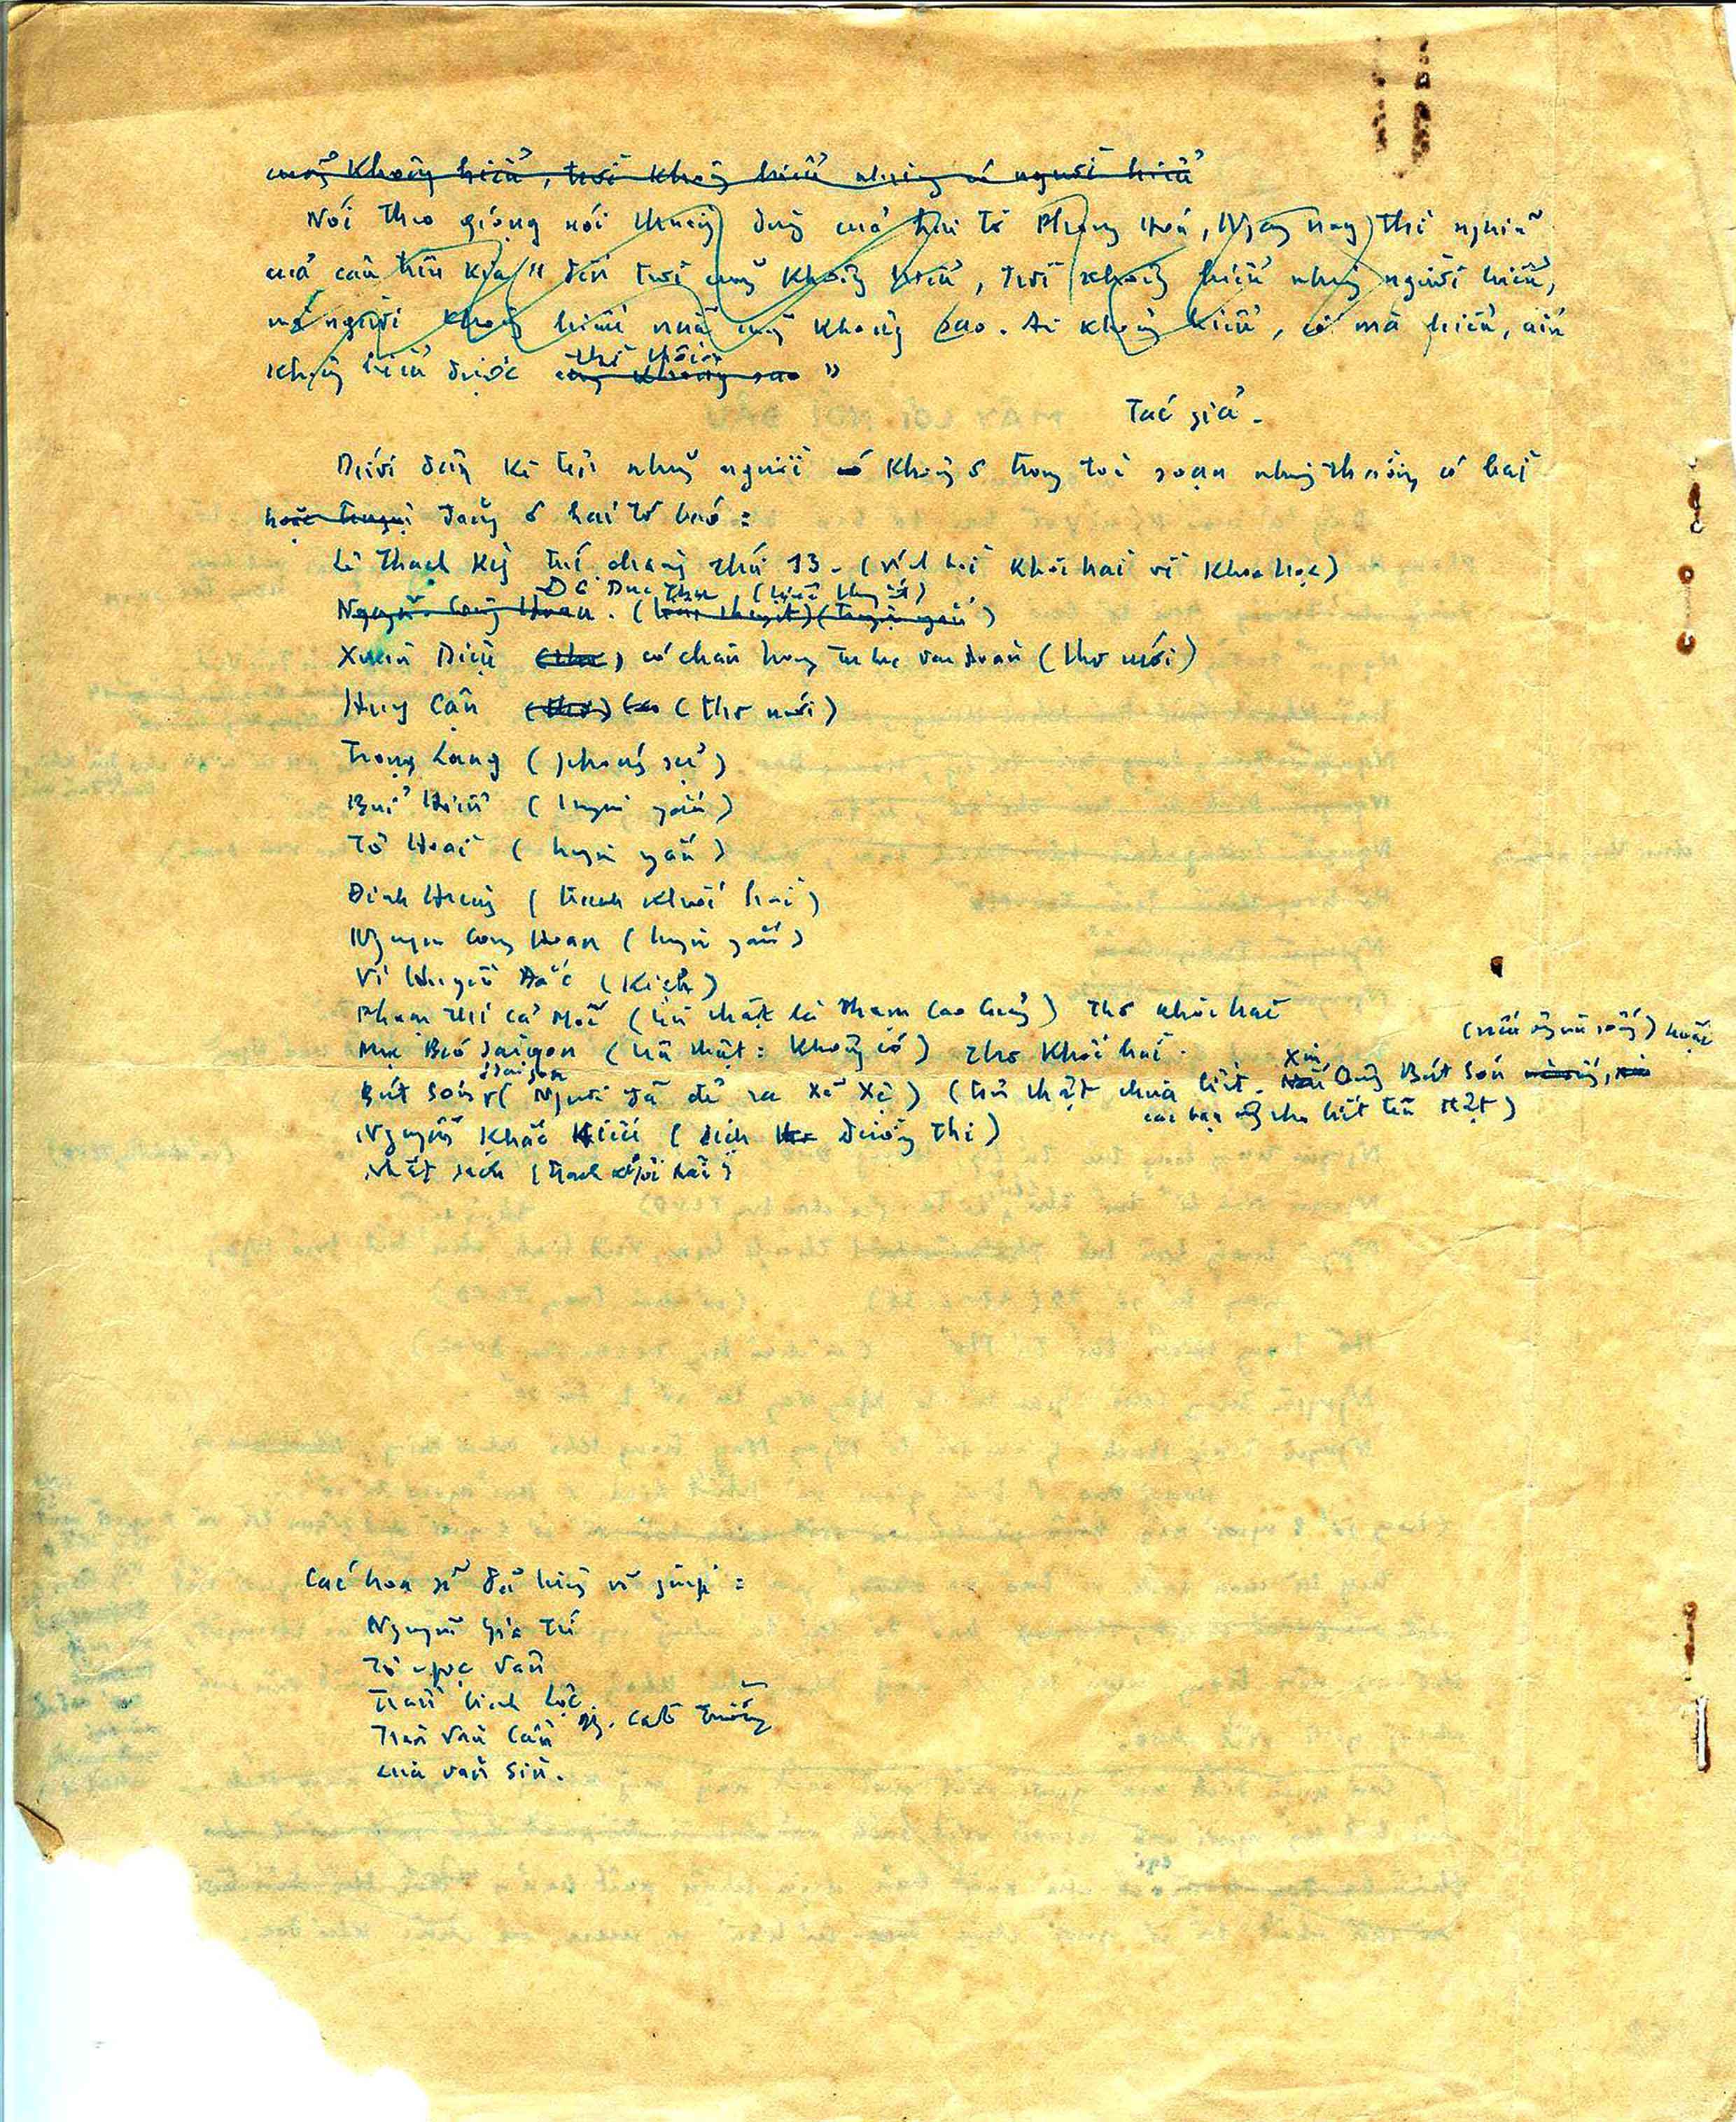 cũng không hiểu, tôi không hiểu nhưng có người hiểu
Nói theo giọng nói thường dùng của hai tờ Phong Hóa, Ngày nay thì nghĩa
của câu trên kia "đến tôi cũng không hiểu, tôi không hiểu nhưng người hiểu,
mà người không hiểu nữa cũng không sao. Ai không hiểu, cố mà hiểu, ai
không hiểu được cũng không sao thì thôi"
Tác giả.
Dưới đây kê tên những người có không ở trong toà soạn nhưng thường có bài
hoặc truyện đăng ở hai tờ báo:
Lê Thạch Kỳ tức chàng thứ 13. (viết bài khôi hài về khoa học)
Đỗ Đức Thu (tiểu thuyết)
Nguyễn Công Hoan. (tiểu thuyết) (truyện ngắn)
Xuân Diệu (thơ) có chân trong Tự lực văn đoàn (thơ mới)
Huy Cận (thơ) (thơ mới)
Trọng Lang (phóng sự)
Bùi Hiển (truyện ngắn)
Tô Hoài (truyện ngắn)
Đinh Hùng (tranh khôi hài)
Nguyễn Công Hoan (truyện ngắn)
Vi Huyền Đắc (Kịch)
Phạm thị cả Mốc (tên thật là Phạm Cao Củng) thơ khôi hài
Bảo Saigon (tên thật: không có) thơ khôi hài.
Bút Sơn Saigon (Người đã đẻ ra Xã Xệ) (tên thật chưa biết. Xin Ông Bút Sơn (nếu ông còn sống) hoặc
các bạn ông cho biết tên thật)
Nguyễn Khắc Hiếu (dịch thơ Đường Thi)
Nhất Sách (tranh khôi hài)
Các hoạ sĩ đã từng vẽ giúp:
Nguyễn Gia Trí
Tô Ngọc Vân
Trần Bình Lộc
Trần Văn Cẩn Ng. Cát Tường